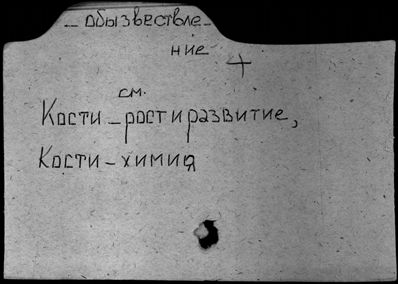 – обызвествле–
ние
см.
Кости – рост и развитие,
Кости – химия